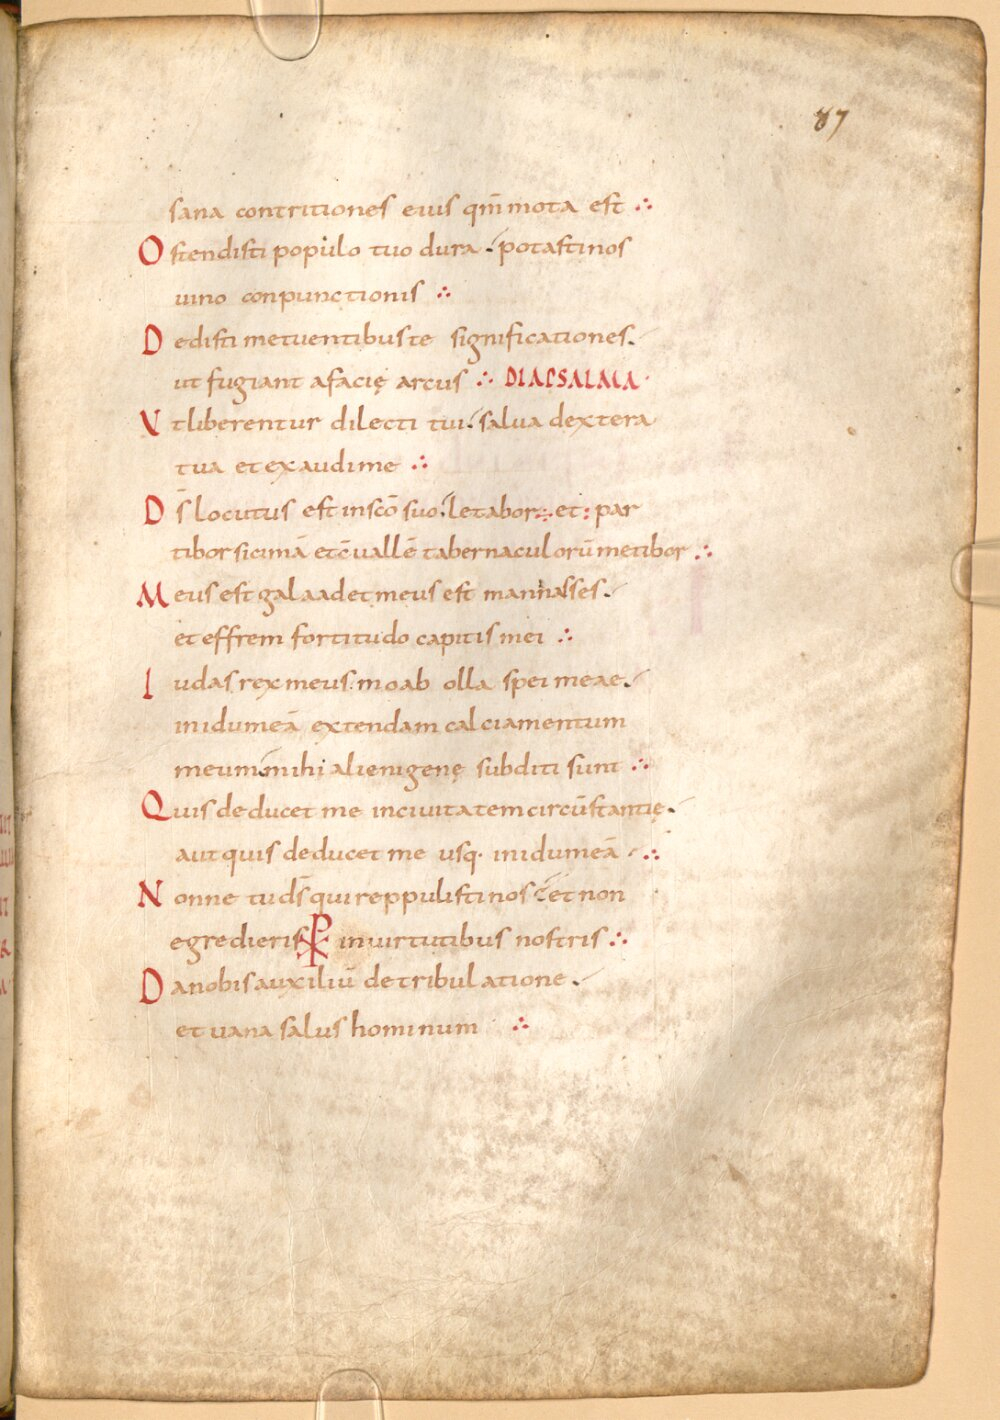 87
sana contritiones eius qm̄ mota est ∴
Ostendisti populo tuo dura potasti nos
uino conpunctionis ∴
Dedisti metuentibus te significationes.
ut fugiant a facię arcus ∴ DIAPSALMA
Vt liberentur dilecti tui salua dextera
tua et exaudi me ∴
Ds̄ locutus est in sc̄o suo letabor et par
tibor sicimā et cūuallē tabernaculorū metibor ∴
Meus est galaad et meus est mannasses.
et effrem fortitudo capitis mei ∴
Iudas rex meus moab olla spei meae.
in idumeā extendam calciamentum
meum mihi alienigenę subditi sunt ∴
Quis deducet me in ciuitatem circūstantię.
aut quis deducet me usq· in idumeā ∴
Nonne tu ds̄ qui reppulisti nos et non
egredieris ☧ in uirtutibus nostris ∴
Da nobis auxiliū de tribulatione.
et uana salus hominum ∴